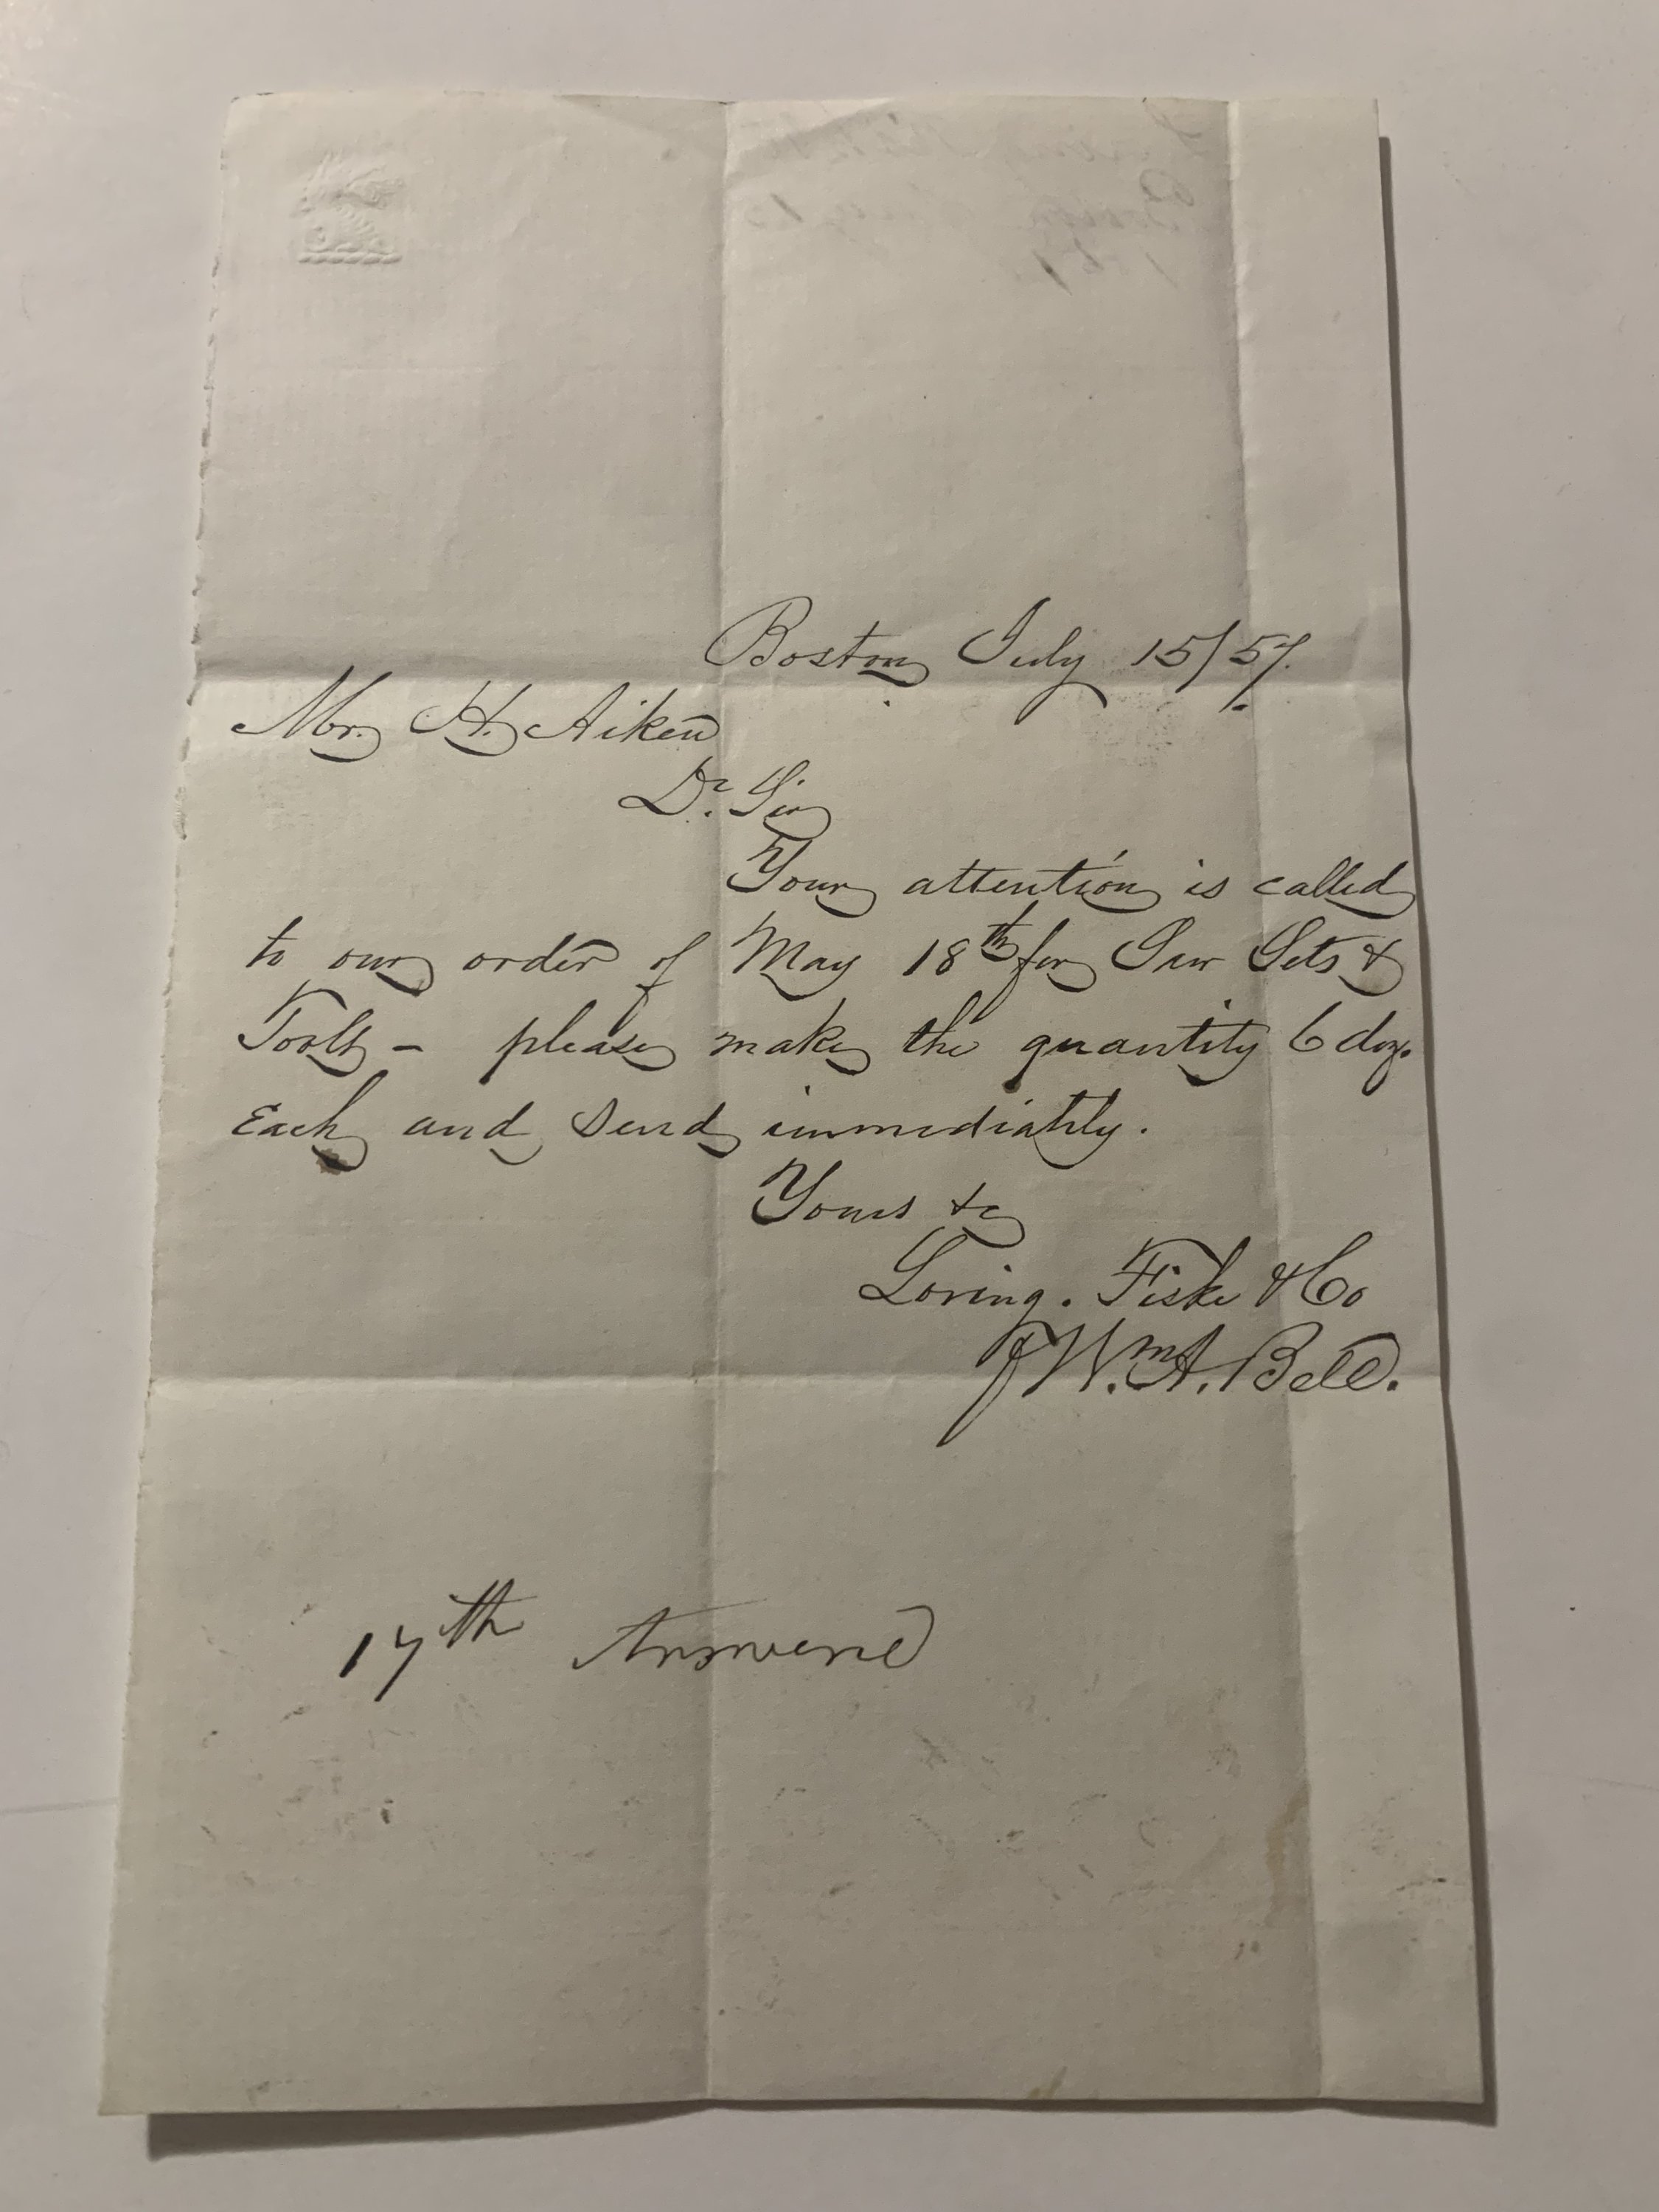 Boston July 15/57.
Mr. H. Aiken
Dr. Sir
Your attention is called
to our order of May 18th for Saw Sets &
Tools – please make the quantity 6 doz.
Each and send immediatly.
Yours &c
Loring. Fiske & Co
Wm. A. Bell.
17th Answered